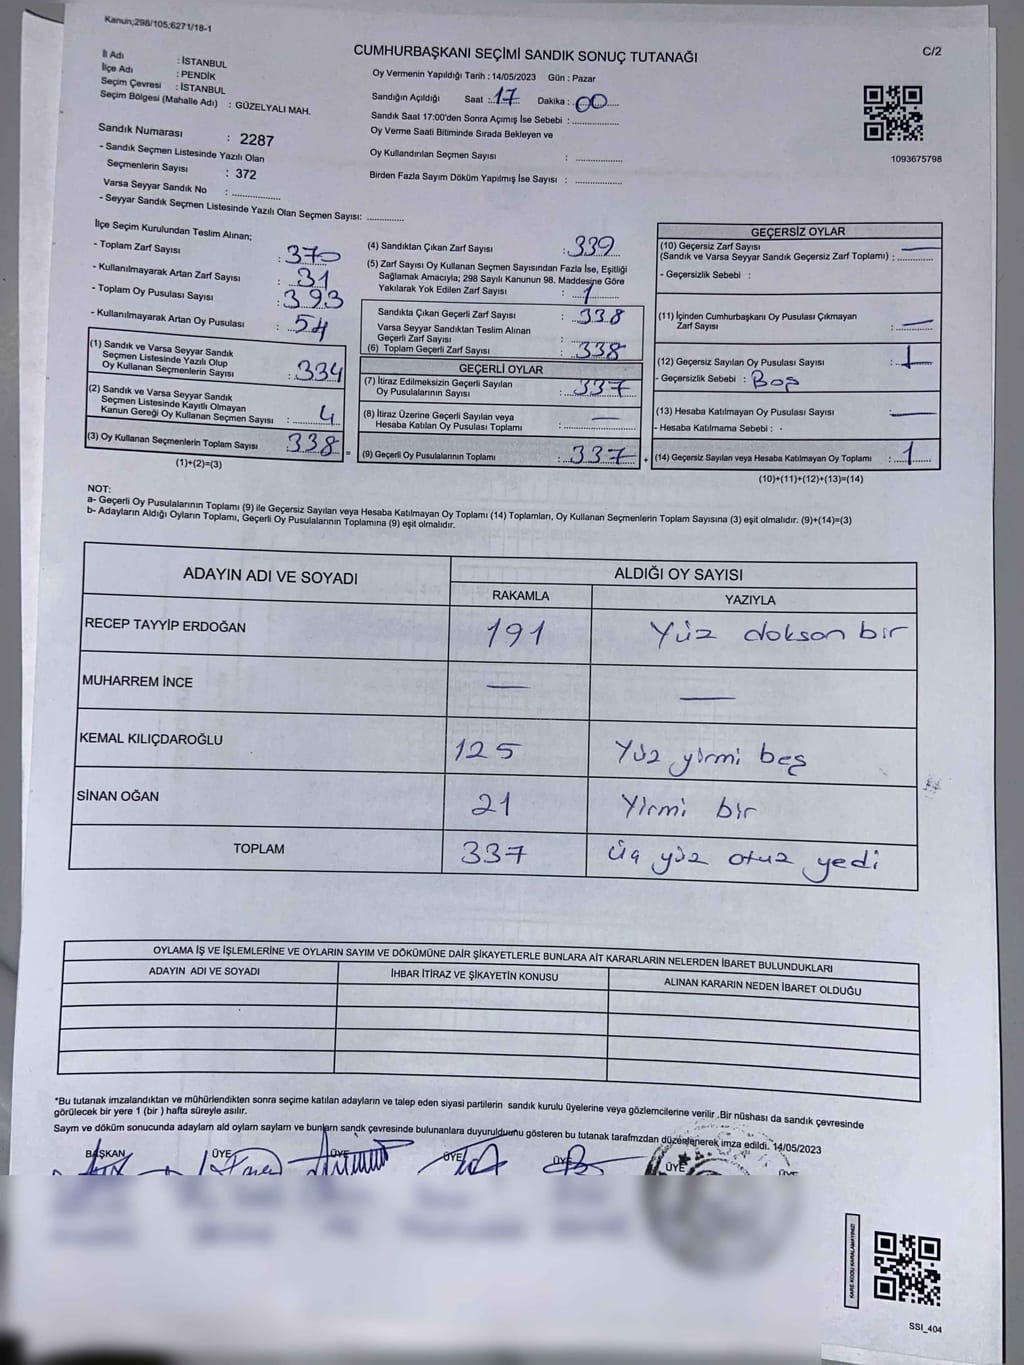 Kanun;298/105;6271/18-1
CUMHURBAŞKANI SEÇİMİ SANDIK SONUÇ TUTANAĞI
C/2
İl Adı : İSTANBUL
İlçe Adı : PENDİK
Seçim Çevresi : İSTANBUL
Seçim Bölgesi (Mahalle Adı) : GÜZELYALI MAH.
Sandık Numarası : 2287
- Sandık Seçmen Listesinde Yazılı Olan
Seçmenlerin Sayısı : 372
Varsa Seyyar Sandık No : ..................
- Seyyar Sandık Seçmen Listesinde Yazılı Olan Seçmen Sayısı: ..............
Oy Vermenin Yapıldığı Tarih : 14/05/2023 Gün : Pazar
Sandığın Açıldığı Saat : 17 Dakika : 00
Sandık Saat 17:00'den Sonra Açımış İse Sebebi : ..................
Oy Verme Saati Bitiminde Sırada Bekleyen ve
Oy Kullandırılan Seçmen Sayısı : ..................
Birden Fazla Sayım Döküm Yapılmış İse Sayısı : ..................
1093675798
İlçe Seçim Kurulundan Teslim Alınan;
- Toplam Zarf Sayısı : 370
- Kullanılmayarak Artan Zarf Sayısı : 31
- Toplam Oy Pusulası Sayısı : 393
- Kullanılmayarak Artan Oy Pusulası : 54
(1) Sandık ve Varsa Seyyar Sandık
Seçmen Listesinde Yazılı Olup
Oy Kullanan Seçmenlerin Sayısı : 334
(2) Sandık ve Varsa Seyyar Sandık
Seçmen Listesinde Kayıtlı Olmayan
Kanun Gereği Oy Kullanan Seçmen Sayısı : 4
(3) Oy Kullanan Seçmenlerin Toplam Sayısı : 338 =
(1)+(2)=(3)
(4) Sandıktan Çıkan Zarf Sayısı : 339
(5) Zarf Sayısı Oy Kullanan Seçmen Sayısından Fazla İse, Eşitliği
Sağlamak Amacıyla; 298 Sayılı Kanunun 98. Maddesine Göre
Yakılarak Yok Edilen Zarf Sayısı : 1
Sandıkta Çıkan Geçerli Zarf Sayısı : 338
Varsa Seyyar Sandıktan Teslim Alınan
Geçerli Zarf Sayısı :
(6) Toplam Geçerli Zarf Sayısı : 338
GEÇERLİ OYLAR
(7) İtiraz Edilmeksizin Geçerli Sayılan
Oy Pusulalarının Sayısı : 337
(8) İtiraz Üzerine Geçerli Sayılan veya
Hesaba Katılan Oy Pusulası Toplamı : —
(9) Geçerli Oy Pusulalarının Toplamı : 337 +
GEÇERSİZ OYLAR
(10) Geçersiz Zarf Sayısı —
(Sandık ve Varsa Seyyar Sandık Geçersiz Zarf Toplamı) : ............
- Geçersizlik Sebebi :
(11) İçinden Cumhurbaşkanı Oy Pusulası Çıkmayan
Zarf Sayısı : —
(12) Geçersiz Sayılan Oy Pusulası Sayısı : 1
- Geçersizlik Sebebi : Boş
(13) Hesaba Katılmayan Oy Pusulası Sayısı : —
- Hesaba Katılmama Sebebi :
(14) Geçersiz Sayılan veya Hesaba Katılmayan Oy Toplamı : 1
(10)+(11)+(12)+(13)=(14)
NOT:
a- Geçerli Oy Pusulalarının Toplamı (9) ile Geçersiz Sayılan veya Hesaba Katılmayan Oy Toplamı (14) Toplamları, Oy Kullanan Seçmenlerin Toplam Sayısına (3) eşit olmalıdır. (9)+(14)=(3)
b- Adayların Aldığı Oyların Toplamı, Geçerli Oy Pusulalarının Toplamına (9) eşit olmalıdır.
ADAYIN ADI VE SOYADI
ALDIĞI OY SAYISI
RAKAMLA YAZIYLA
RECEP TAYYİP ERDOĞAN 191 Yüz doksan bir
MUHARREM İNCE — —
KEMAL KILIÇDAROĞLU 125 Yüz yirmi beş
SİNAN OĞAN 21 Yirmi bir
TOPLAM 337 Üç yüz otuz yedi
OYLAMA İŞ VE İŞLEMLERİNE VE OYLARIN SAYIM VE DÖKÜMÜNE DAİR ŞİKAYETLERLE BUNLARA AİT KARARLARIN NELERDEN İBARET BULUNDUKLARI
ADAYIN ADI VE SOYADI İHBAR İTİRAZ VE ŞİKAYETİN KONUSU ALINAN KARARIN NEDEN İBARET OLDUĞU
*Bu tutanak imzalandıktan ve mühürlendikten sonra seçime katılan adayların ve talep eden siyasi partilerin sandık kurulu üyelerine veya gözlemcilerine verilir .Bir nüshası da sandık çevresinde
görülecek bir yere 1 (bir ) hafta süreyle asılır.
Sayım ve döküm sonucunda adayların aldığı oyların sayıları ve bunların sandık çevresinde bulunanlara duyurulduğunu gösteren bu tutanak tarafımızdan düzenlenerek imza edildi. 14/05/2023
BAŞKAN ÜYE ÜYE ÜYE ÜYE ÜYE ÜYE
KARE KODU KARALAMAYINIZ!
SSI_404